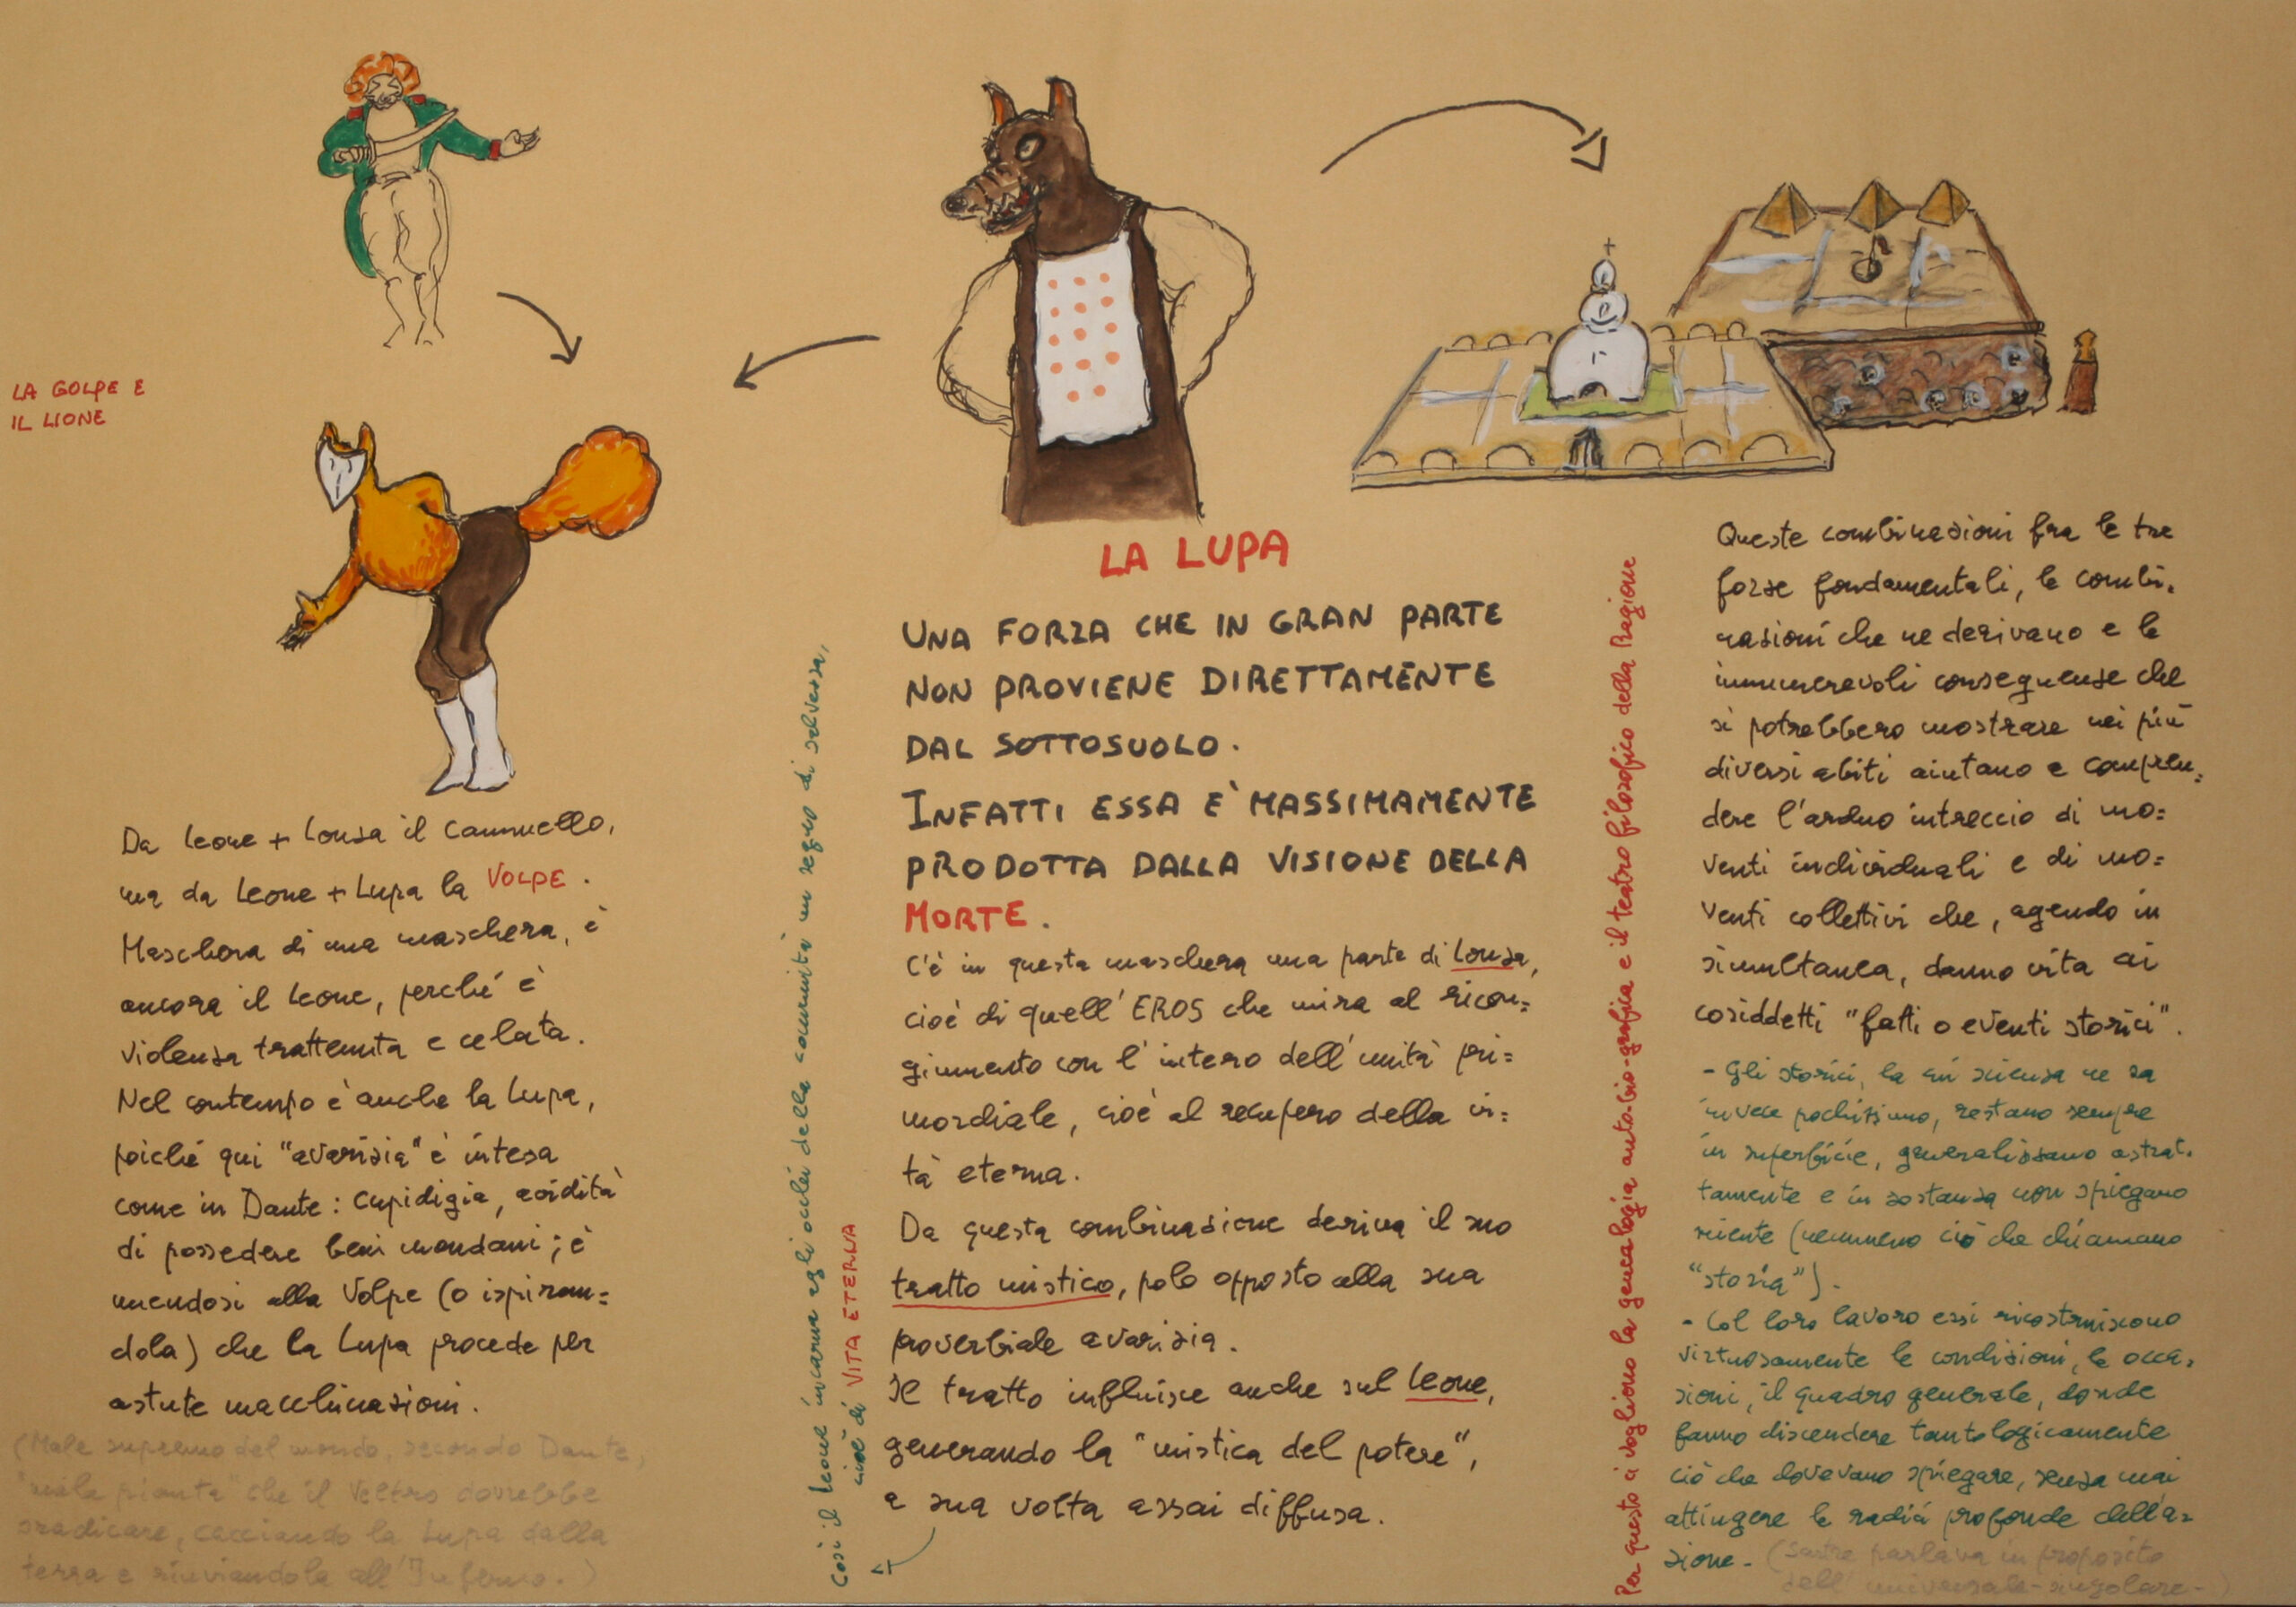 LA GOLPE E
IL LIONE
Da Leone + Lonza il Cammello,
ma da Leone + Lupa la VOLPE.
Maschera di una maschera, è
ancora il Leone, perché è
violenza trattenuta e celata.
Nel contempo è anche la Lupa,
poiché qui "avarizia" è intesa
come in Dante: cupidigia, avidità
di possedere beni mondani; è
unendosi alla Volpe (o ispiran=
dola) che la Lupa procede per
astute macchinazioni.
(Male supremo del mondo, secondo Dante,
"mala pianta" che il Veltro dovrebbe
sradicare, cacciando la Lupa dalla
terra e rinviandola all'Inferno.)
Così il Leone incarna agli occhi della comunità un segno di salvezza,
cioè di VITA ETERNA
LA LUPA
UNA FORZA CHE IN GRAN PARTE
NON PROVIENE DIRETTAMENTE
DAL SOTTOSUOLO.
INFATTI ESSA E' MASSIMAMENTE
PRODOTTA DALLA VISIONE DELLA
MORTE.
C'è in questa maschera una parte di Lonza,
cioè di quell'EROS che mira al ricon=
giumento con l'intero dell'unità pri=
mordiale, cioè al recupero della vi=
ta eterna.
Da questa combinazione deriva il suo
tratto mistico, polo opposto alla sua
proverbiale avarizia.
Il tratto influisce anche sul Leone,
generando la "mistica del potere",
a sua volta assai diffusa.
Per questo ci vogliono la genealogia auto-bio-grafica e il teatro filosofico della Ragione
Queste combinazioni fra le tre
forze fondamentali, le combi.
nazioni che ne derivano e le
innumerevoli conseguenze che
si potrebbero mostrare nei più
diversi abiti aiutano a compren=
dere l'arduo intreccio di mo=
venti individuali e di mo=
venti collettivi che, agendo in
simultanea, danno vita ai
cosiddetti "fatti o eventi storici".
- Gli storici, la cui scienza ne sa
invece pochissimo, restano sempre
in superficie, generalizzano astrat.
tamente e in sostanza non spiegano
niente (nemmeno ciò che chiamano
"storia").
- Col loro lavoro essi ricostruiscono
virtuosamente le condizioni, le occa=
sioni, il quadro generale, donde
fanno discendere tautologicamente
ciò che dovevano spiegare, senza mai
attingere le radici profonde dell'a=
zione - (Sartre parlava in proposito
dell'universale-singolare-)